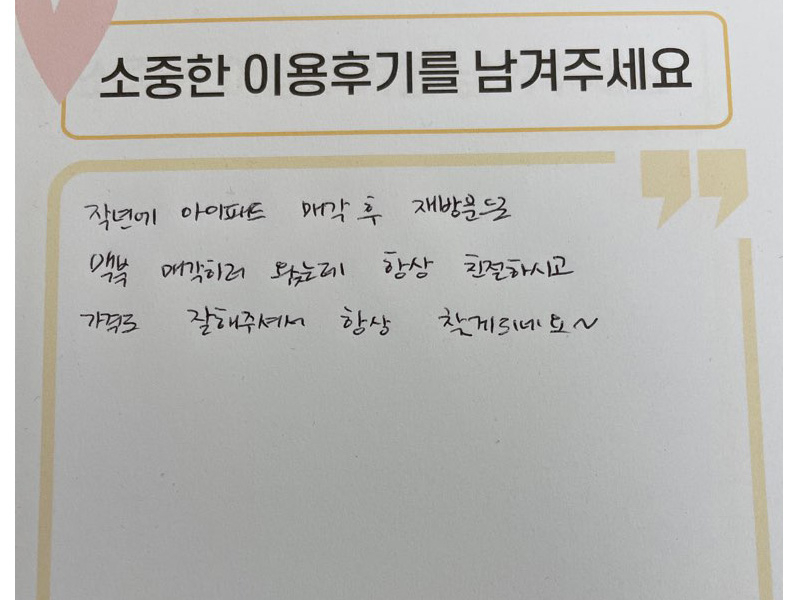 소중한 이용후기를 남겨주세요
작년에 아이패드 매각 후 재방문으로
맥북 매각하러 왔는데 항상 친절하시고
가격도 잘해주셔서 항상 찾게되네요~